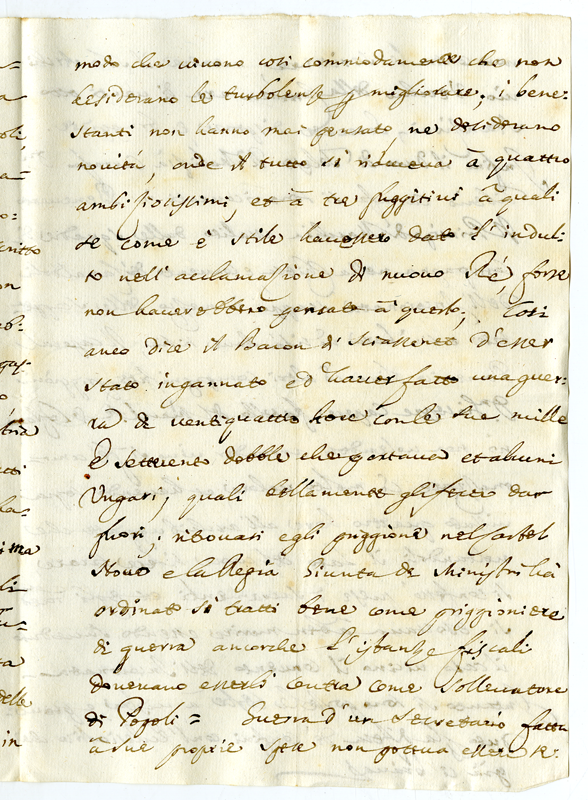 modo che vivono così commodamente che non
desiderano le turbolenze p migliorare; i bene=
stanti non hanno mai pensato, ne desiderano
novità, onde il tutto si riduceva à quattro
ambiziosissimi, et à tre fuggitivi à quali
se come è stile havessero dato l'indul=
to nell'acclamazione di nuovo Rè, forse
non haverebbero pensato à questo; Così
anco dice il Baron di Sciassenet d'esser
stato ingannato ed haver fatto una guer=
ra di ventiquattro hore con le sue mille
e settecento dobble che portava et alcuni
Ungari, quali bellamente gli fece dar
fuori; ritrovasi egli priggione nel Castel
Novo e la Regia Giunta de Ministri hà
ordinato si tratti bene come priggioniere
di guerra ancorche l'istanze fiscali
dovevano esserli contra come sollevatore
di Popoli = Guerra d'un secretario fatta
à sue proprie spese non poteva esser se=
oli,
critto
on
ab=
o
tria
tti
ima
li
ta
delle
in